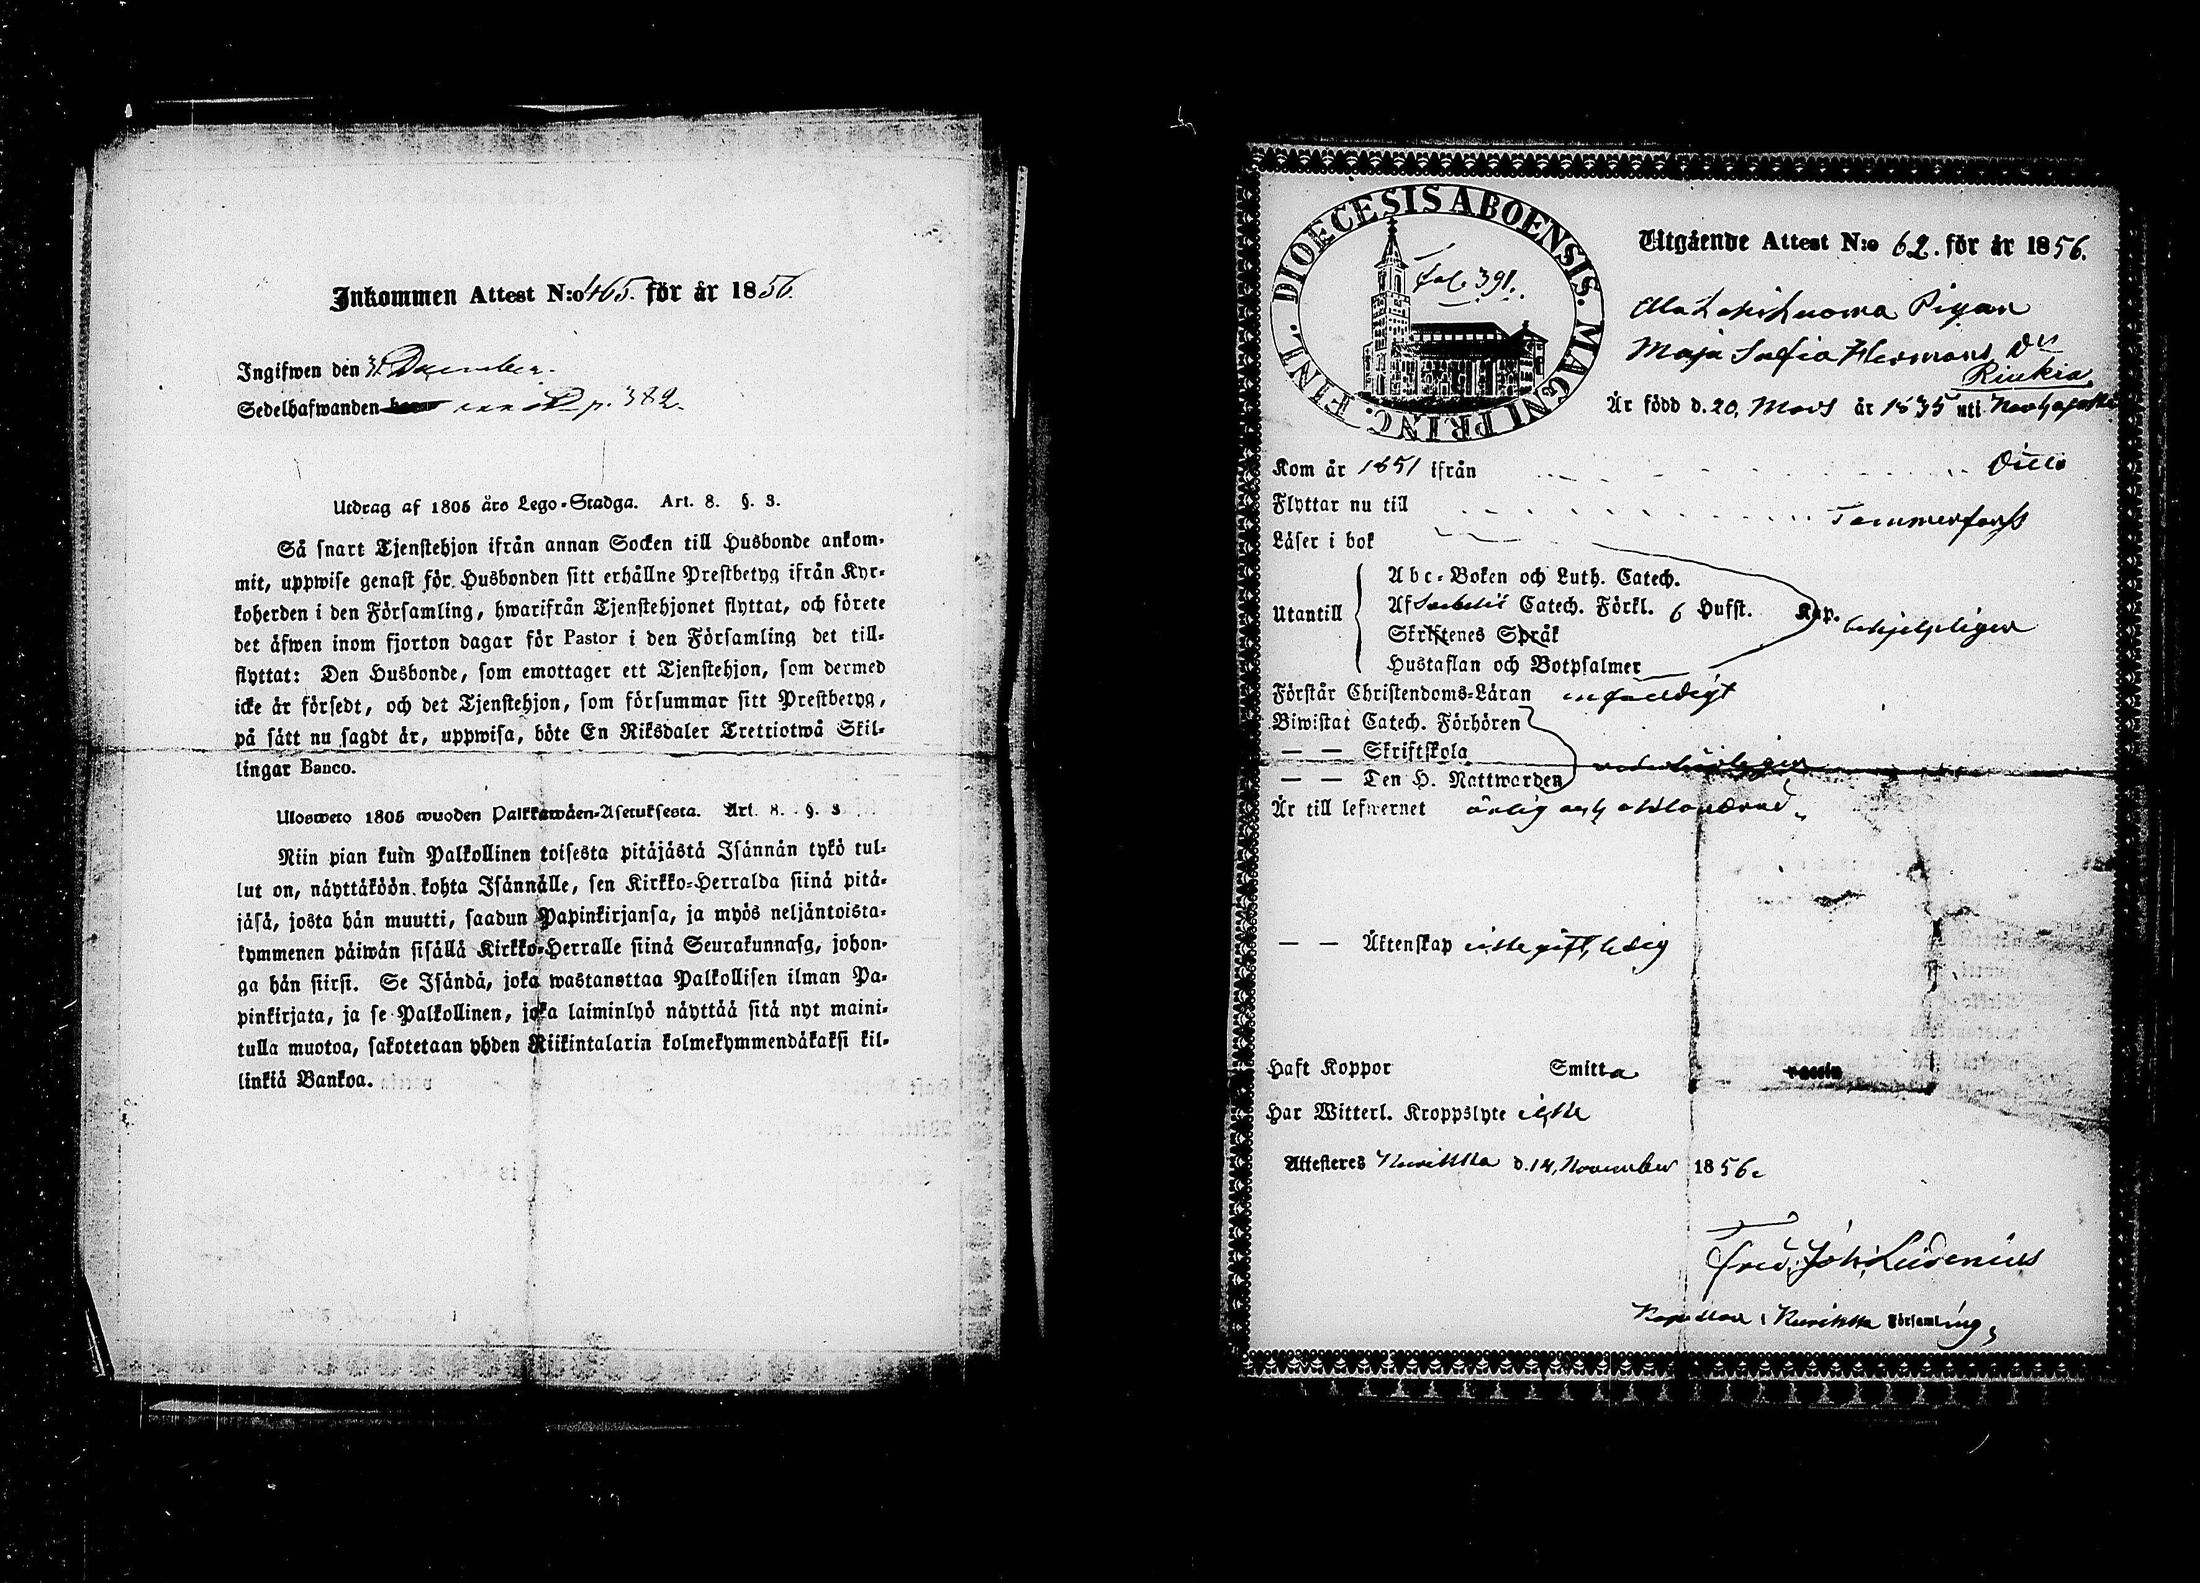 Inkommen Attest N:o 465. för år 1856.
Ingifwen den 31 December.
Sedelhafwanden p. 382.
Utdrag af 1805 års Lego-Stadga. Art. 8. §. 3.
Så snart Tjenstehjon ifrån annan Socken till Husbonde ankom-
mit, uppwise genast för Husbonden sitt erhållne Prestbetyg ifrån Kyr-
koherden i den Församling, hwarifrån Tjenstehjonet flyttat, och förete
det äfwen inom fjorton dagar för Pastor i den Församling det till-
flyttat: Den Husbonde, som emottager ett Tjenstehjon, som dermed
icke är försedt, och det Tjenstehjon, som försummar sitt Prestbetyg,
på sätt nu sagdt är, uppwisa, böte En Riksdaler Trettiotwå Skil-
lingar Banco.
Uloswеto 1805 wuoden Palkkawäen-Asetuksesta. Art. 8. §. 3
Niin pian kuin Palkollinen toisesta pitäjästä Isännän tykö tul-
lut on, näyttäköön kohta Isännälle, sen Kirkko-Herralda siinä pitä-
jäsä, josta hän muutti, saadun Papinkirjansa, ja myös neljäntoista-
kymmenen päiwän sisällä Kirkko-Herralle siinä Seurakunnasa, johon-
ga hän siirsi. Se Isändä, joka wastanottaa Palkollisen ilman Pa-
pinkirjata, ja se Palkollinen, joka laiminlyö näyttää sitä nyt maini-
tulla muotoa, sakotetaan yhden Riikintalarin kolmekymmendäkaksi kil-
linkiä Bankoa.
DIOECESIS ABOENSIS. MAGNI PRINC. FINL.
Fol. 391.
Utgående Attest N:o 62. för år 1856.
Pigan
Maja Sofia Hermans Dr
Rinkia
Är född d. 20, Mars år 1835 uti
Kom år 1851 ifrån Ditto
Flyttar nu till Tammerfors
Läser i bok
Utantill
Abc-Boken och Luth. Catech.
Af Svebelii Catech. Förkl. 6 Hufst. Kap.
Skriftenes Språk
behjelpligen
Hustaflan och Botpsalmer
Förstår Christendoms-Läran enfaldigt
Biwistat Catech. Förhören
— — Skriftskola
— — Den H. Nattwarden
Är till lefwernet ärlig och oklandrad
— — Äktenskap icke gift, ledig
Haft Koppor Smitta vaccin
Har Witterl. Kroppslyte icke
Attesteres Kurikka d. 14, November 1856.
Fred. Joh. Lidenius
Kapellan i Kurikka Församling,